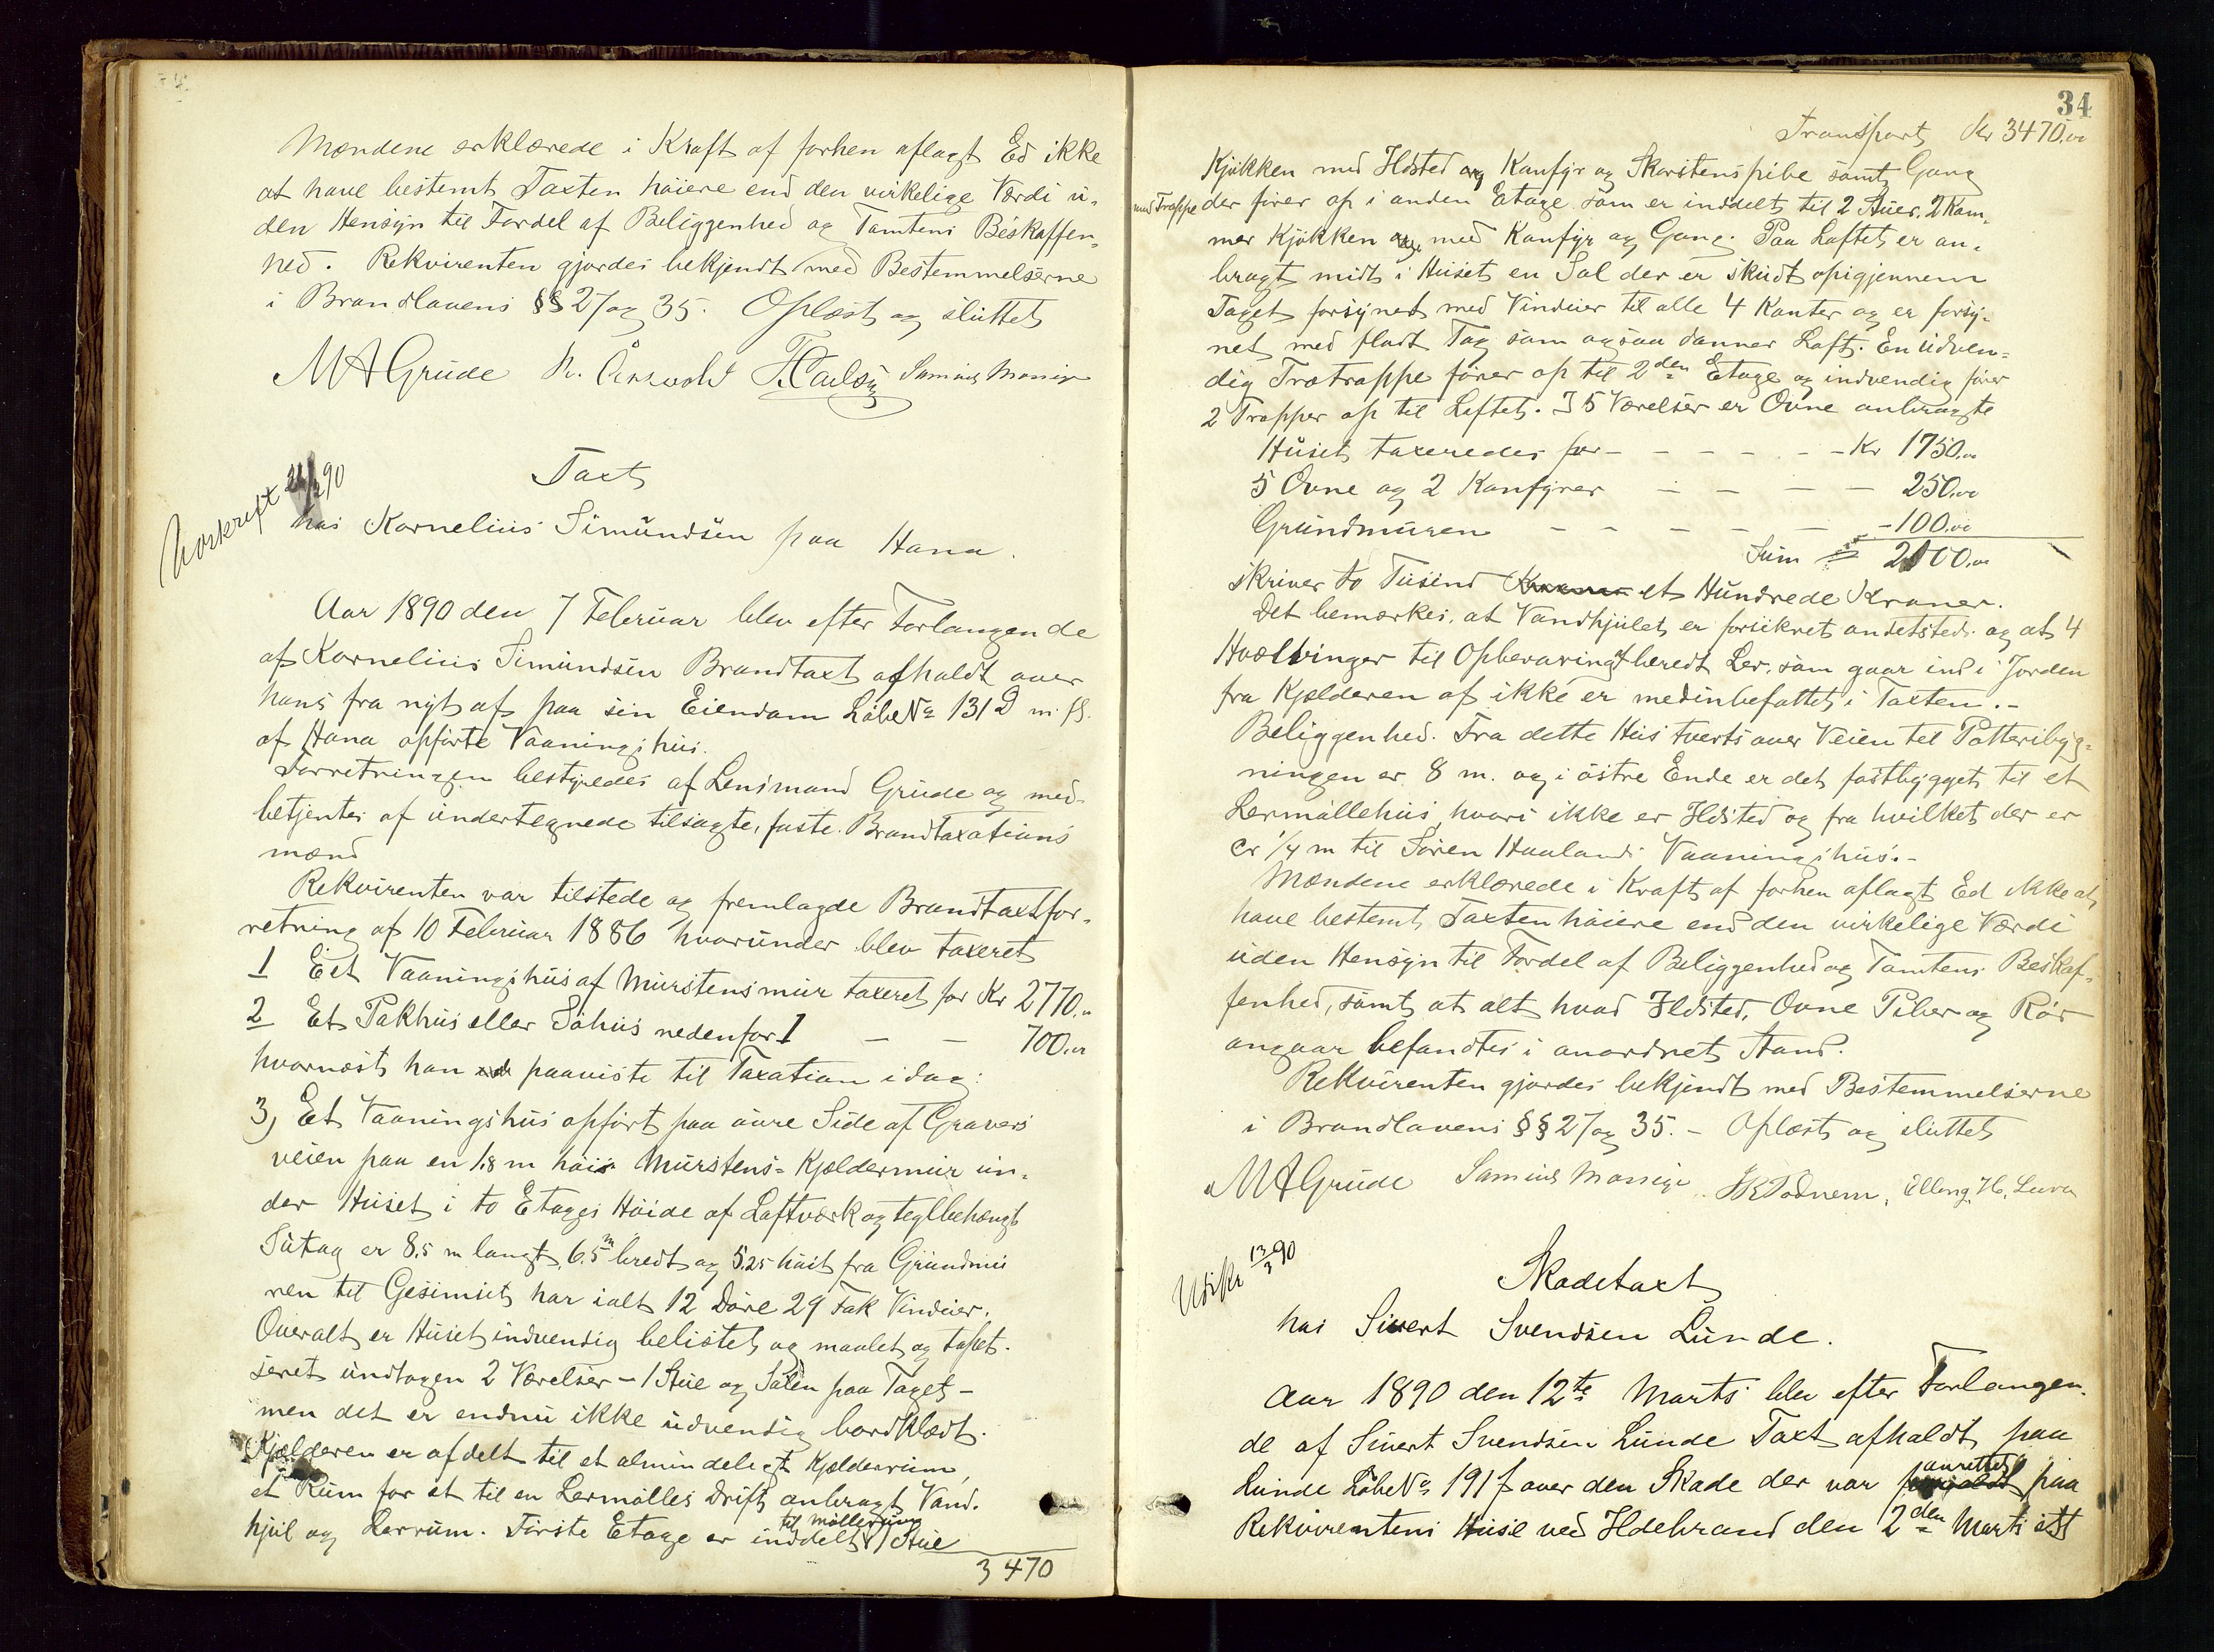 Mændene erklærede i Kraft af forhen aflagt Ed ikke
at have bestemt Taxten høiere end den virkelige Værdi u-
den Hensyn til Fordel af Beliggenhed og Tomtens Beskaffen-
hed. Rekvirenten gjordes bekjendt med Bestemmelserne
i Brandlovens §§ 27 og 35. Oplæst og sluttet
M A Grude Samuel
90
Taxt
hos Kornelius Simundsen paa Hana.
Aar 1890 den 7 Februar blev efter Forlangende
af Kornelius Simundsen Brandtaxt afholdt over
hans fra nyt af paa sin Eiendom Løbe No 131 d m. fl.
af Hana opførte Vaaningshus.
Forretningen bestyredes af Lensmand Grude og med-
betjentes af undertegnede tilsagte, faste Brandtaxations
mænd
Rekvirenten var tilstede og fremlagde Brandtaxtfor-
retning af 10 Februar 1886 hvorunder blev taxeret
1 Eet Vaaningshus af Murstensmur taxeret for Kr 2770.00
2 Et Pakhus eller Søhus nedenfor 1 — — 700.00
hvornæst han paaviste til Taxation idag:
3, Et Vaaningshus opført paa øvre Side af Gravers
veien paa en 1.8 m høi Murstens-Kjældermur un-
der Huset i to Etages Høide af Loftværk og teglbehængt
Sutag er 8.5 m langt, 6.5 m bredt og 5.25 høit fra Grundmu
ren til Gesimset, har ialt 12 Døre 29 Fak Vinduer.
Overalt er Huset indvendig belistet og maalet og tapet-
seret undtagen 2 Værelser – 1 Stue og Salen paa Taget –
men det er endnu ikke udvendig bordklædt.
Kjælderen er afdelt til et almindeligt Kjælderrum,
et Rum for et til en Lermølles Drift anbragt Vand-
til møllerum
hjul og Lerrum. Første Etage er inddelt 1 Stue
3470
34
Transport Kr 3470.00
Kjøkken med Ildsted og Komfyr og Skorstenspibe samt Gang
med Trappe der fører op i anden Etage som er inddelt til 2 Stuer, 2 Kam-
mer Kjøkken med Komfyr og Gang. Paa Loftet er an-
bragt midt i Huset en Sal der er skudt opigjennem
Taget forsynet med Vinduer til alle 4 Kanter og er forsy-
net med fladt Tag som ogsaa danner Loft. En udven-
dig Trætrappe fører op til 2den Etage og indvendig fører
2 Trapper op til Loftet. I 5 Værelser er Ovne anbragte
Huset taxeredes for – – – – – – Kr 1750.00
5 Ovne og 2 Komfyrer – – – – 250.00
Grundmuren – – – – – – 100.00
Sum 2100.00
skriver to Tusind et Hundrede Kroner.
Det bemærkes, at Vandhjulet er forsikret andetsteds og at 4
Hvælvinger til Opbevaring af beredt Ler, som gaar ind i Jorden
fra Kjælderen af ikke er medinbefattet i Taxten.–
Beliggenhed. Fra dette Hus tverts over Veien til Potteribyg-
ningen er 8 m. og i østre Ende er det fastbygget til et
Lermøllehus, hvori ikke er Ildsted og fra hvilket der er
cr 1/4 m til Søren Haalands Vaaningshus.–
Mændene erklærede i Kraft af forhen aflagt Ed ikke at
have bestemt Taxten høiere end den virkelige Værdi
uden Hensyn til Fordel af Beliggenhed og Tomtens Beskaf-
fenhed, samt at alt hvad Ildsted, Ovne Piber og Rør
angaar befandtes i anordnet Stand.
Rekvirenten gjordes bekjendt med Bestemmelserne
i Brandlovens §§ 27 og 35.– Oplæst og sluttet
M A Grude Samuel Elling H.
Udskr 13/3 90
Skadetaxt
hos Sivert Svendsen Lunde.
Aar 1890 den 12te Marts blev efter Forlangen-
de af Sivert Svendsen Lunde Taxt afholdt paa
anrettet
Lunde Løbe No 191 f over den Skade der var paa
Rekvirentens Huse ved Ildebrand den 2den Marts